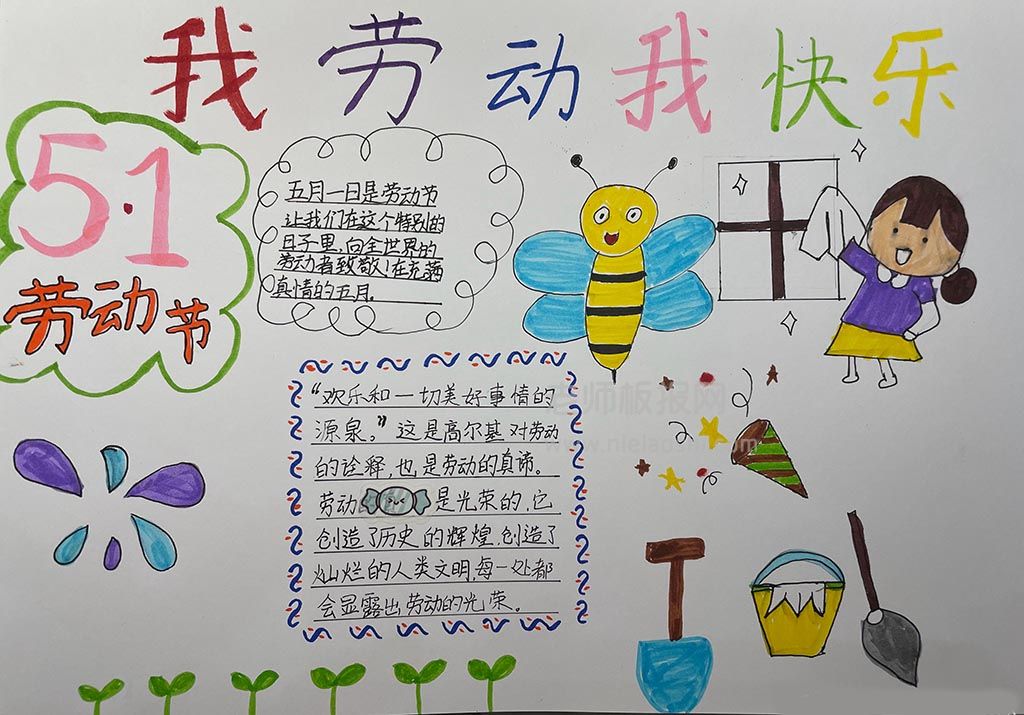 我劳动我快乐
5.1
劳动节
五月一日是劳动节
让我们在这个特别的
日子里,向全世界的
劳动者致敬!在充满
真情的五月。
“欢乐和一切美好事情的
源泉。”这是高尔基对劳动
的诠释,也是劳动的真谛。
劳动是光荣的,它
创造了历史的辉煌,创造了
灿烂的人类文明,每一处都
会显露出劳动的光荣。
老师板报网